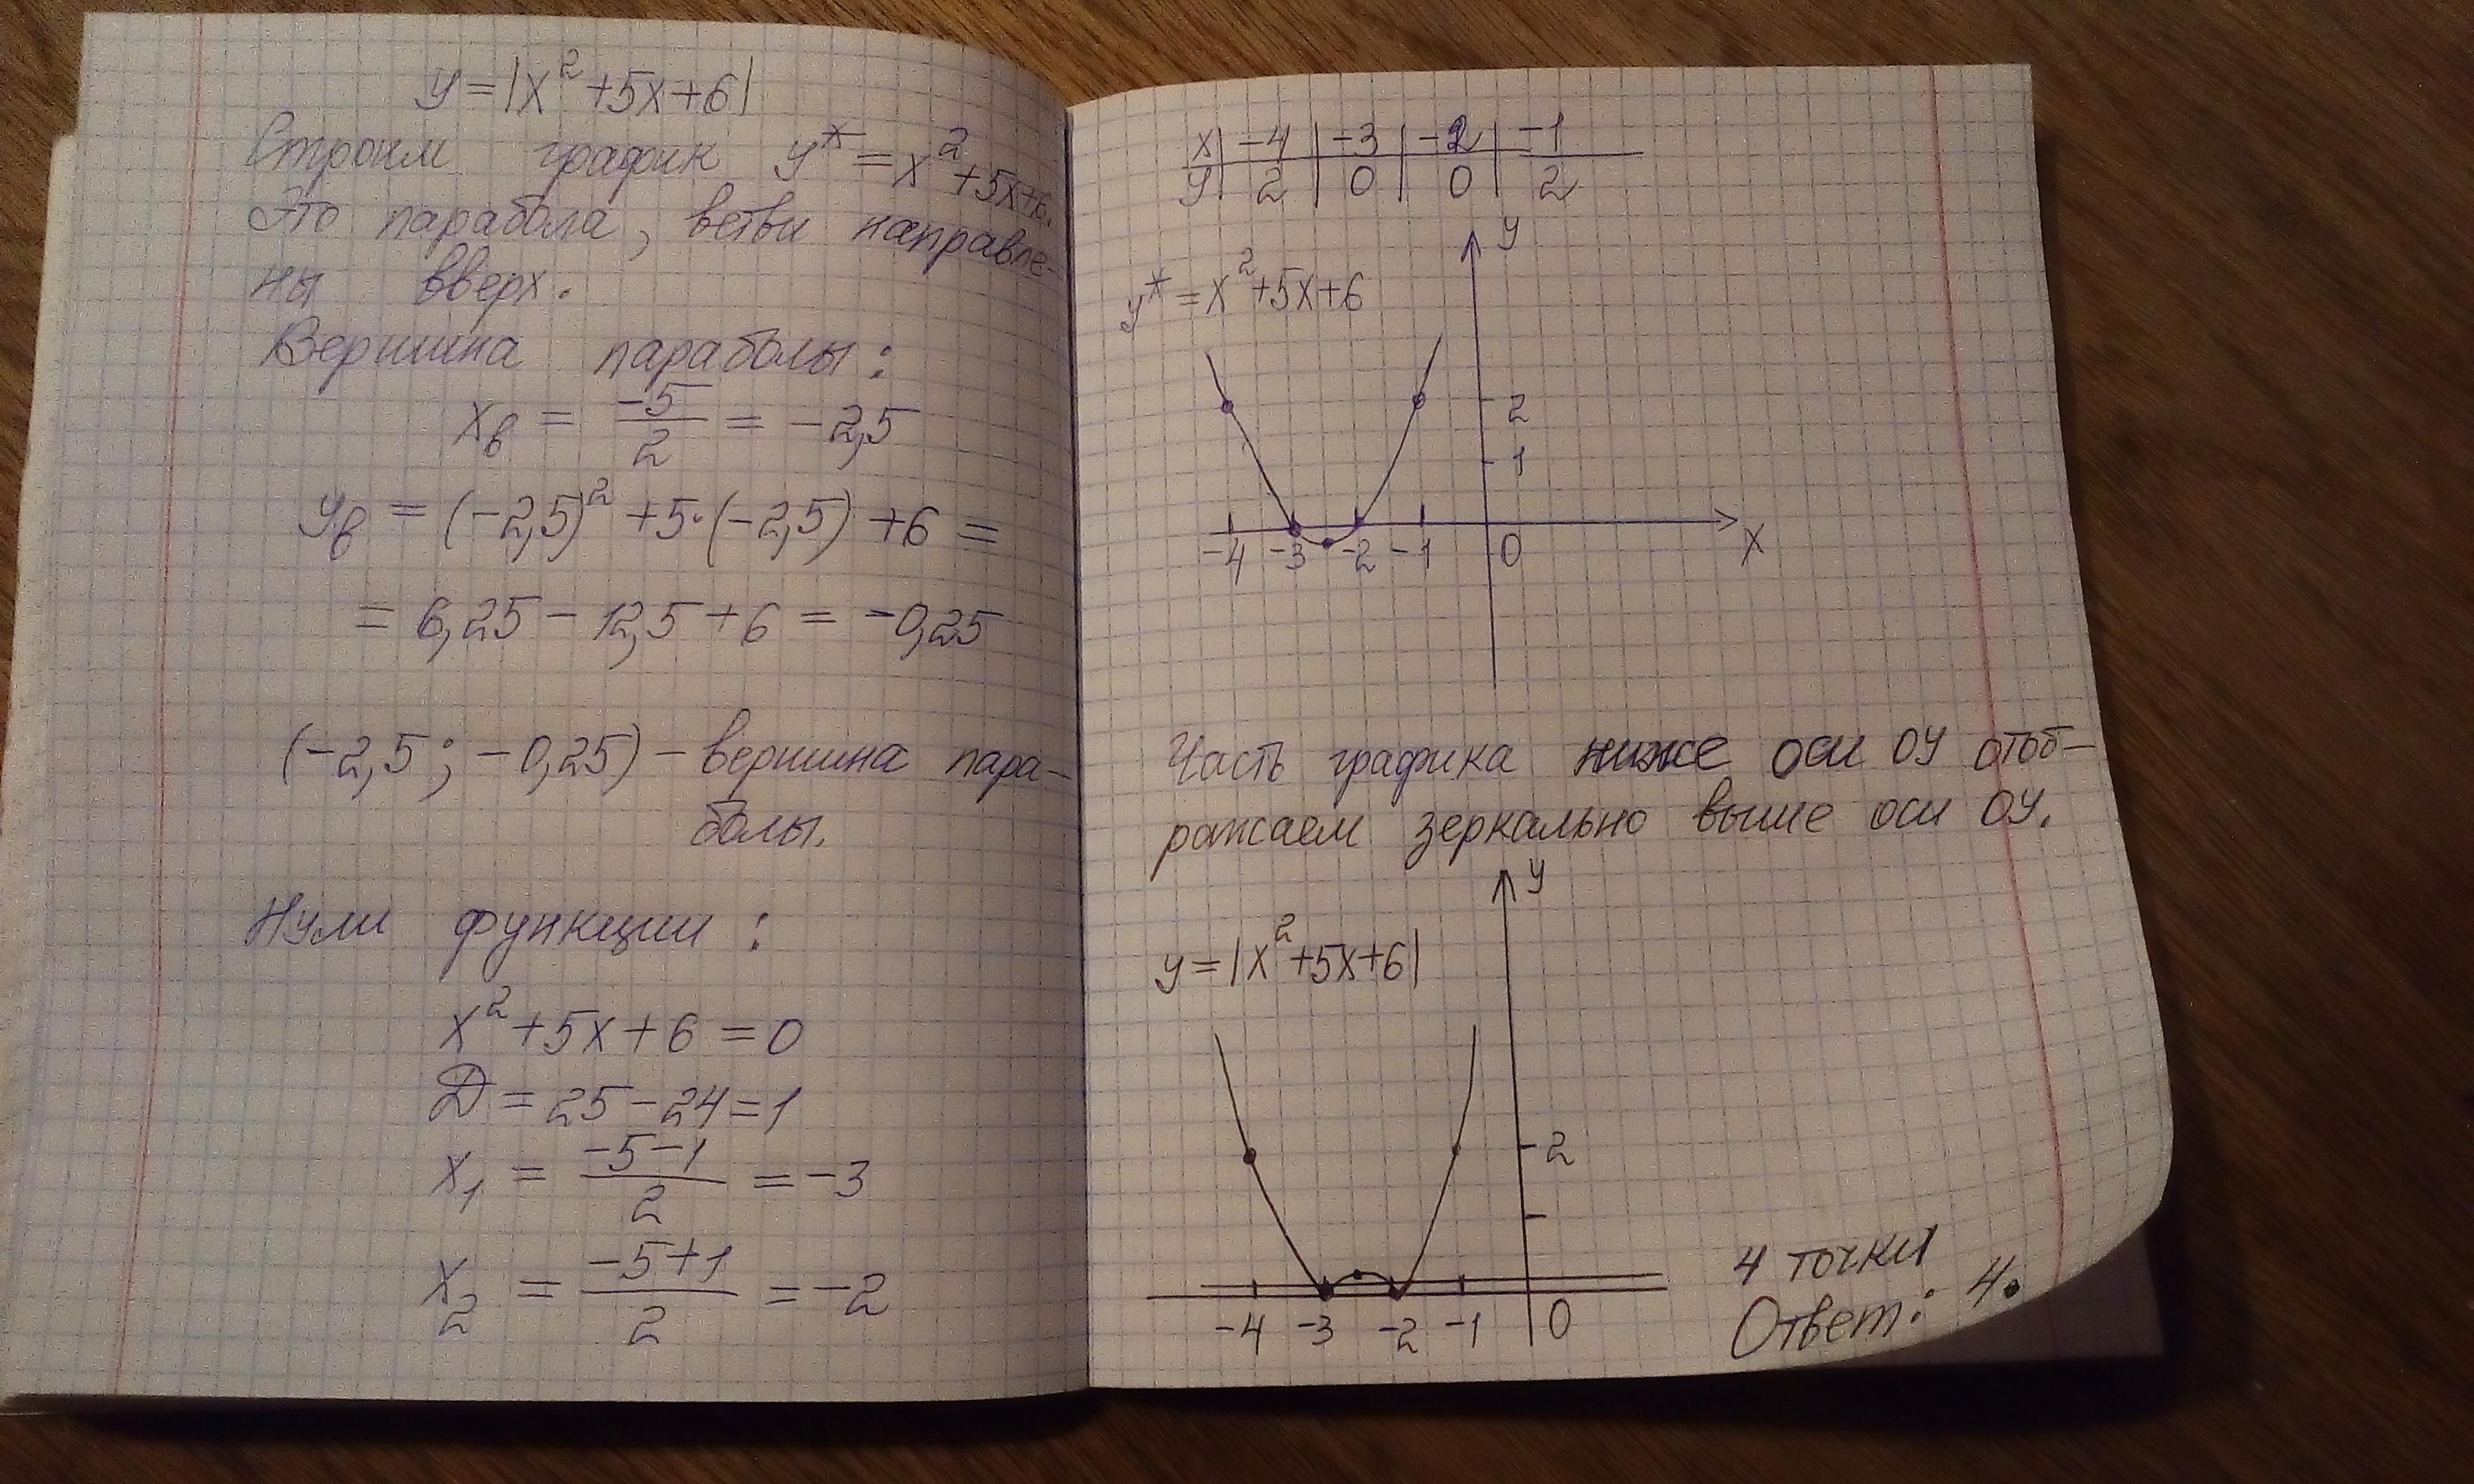 y=|x²+5x+6|
Строим график y*=x²+5x+6.
Это парабола, ветви направле-
ны вверх.
Вершина параболы:
xв = -5/2 = -2,5
yв = (-2,5)²+5·(-2,5)+6=
= 6,25-12,5+6 = -0,25
(-2,5; -0,25) - вершина пара-
болы.
Нули функции:
x²+5x+6=0
D=25-24=1
x₁ = (-5-1)/2 = -3
x₂ = (-5+1)/2 = -2
x | -4 | -3 | -2 | -1
y | 2 | 0 | 0 | 2
y
y*=x²+5x+6
2
1
-4 -3 -2 -1 0 x
Часть графика ниже оси OY отоб-
ражаем зеркально выше оси OY.
y
y=|x²+5x+6|
2
-4 -3 -2 -1 0
4 точки
Ответ: 4.